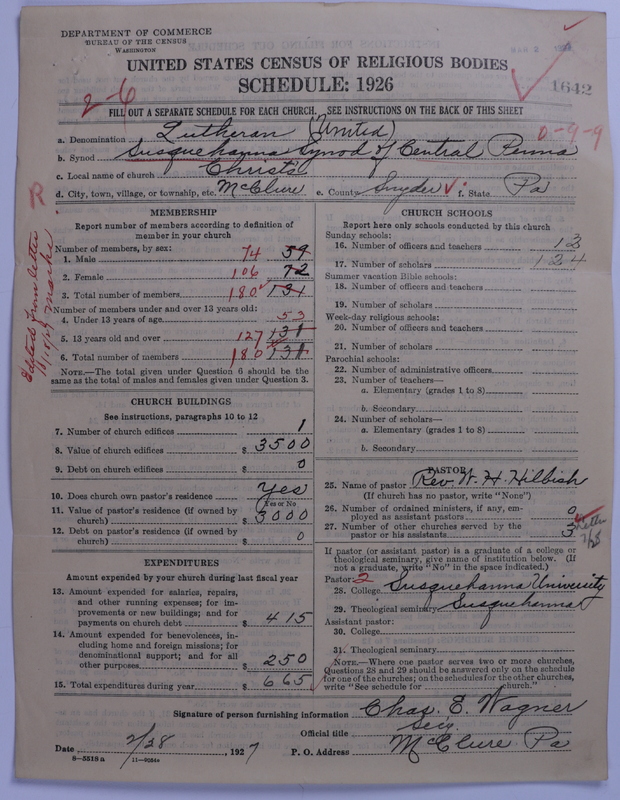 DEPARTMENT OF COMMERCE
BUREAU OF THE CENSUS
WASHINGTON
UNITED STATES CENSUS OF RELIGIOUS BODIES
SCHEDULE: 1926
1642
2-6
FILL OUT A SEPARATE SCHEDULE FOR EACH CHURCH. SEE INSTRUCTIONS ON THE BACK OF THIS SHEET
a. Denomination Lutheran (United)
0-9-9
b. Synod Susquehanna Synod of Central Penna
c. Local name of church Christ's
d. City, town, village, or township, etc. McClure e. County Snyder f. State Pa
R
Edited from letter
MEMBERSHIP
Report number of members according to definition of
member in your church
Number of members, by sex:
1. Male 74 59
2. Female 106 72
3. Total number of members 180 131
Number of members under and over 13 years old:
4. Under 13 years of age 53
5. 13 years old and over 127 131
6. Total number of members 180 131
NOTE.—The total given under Question 6 should be the
same as the total of males and females given under Question 3.
CHURCH BUILDINGS
See instructions, paragraphs 10 to 12
7. Number of church edifices 1
8. Value of church edifices $ 3500
9. Debt on church edifices $ 0
10. Does church own pastor's residence Yes
Yes or No
11. Value of pastor's residence (if owned by
church) $ 3000
12. Debt on pastor's residence (if owned by
church) $ 0
EXPENDITURES
Amount expended by your church during last fiscal year
13. Amount expended for salaries, repairs,
and other running expenses; for im-
provements or new buildings; and for
payments on church debt $ 415
14. Amount expended for benevolences, in-
cluding home and foreign missions; for
denominational support; and for all
other purposes $ 250
15. Total expenditures during year $ 665
CHURCH SCHOOLS
Report here only schools conducted by this church
Sunday schools:
16. Number of officers and teachers 13
17. Number of scholars 124
Summer vacation Bible schools:
18. Number of officers and teachers
19. Number of scholars
Week-day religious schools:
20. Number of officers and teachers
21. Number of scholars
Parochial schools:
22. Number of administrative officers
23. Number of teachers—
a. Elementary (grades 1 to 8)
b. Secondary
24. Number of scholars—
a. Elementary (grades 1 to 8)
b. Secondary
PASTOR
25. Name of pastor Rev. W. H. Hilbish
(If church has no pastor, write "None")
26. Number of ordained ministers, if any, em-
ployed as assistant pastors 0
27. Number of other churches served by the
pastor or his assistants 3
If pastor (or assistant pastor) is a graduate of a college or
theological seminary, give name of institution below. (If
not a graduate, write "No" in the space indicated.)
Pastor: 2
28. College Susquehanna University
29. Theological seminary Susquehanna
Assistant pastor:
30. College
31. Theological seminary
NOTE.—Where one pastor serves two or more churches,
Questions 28 and 29 should be answered only on the schedule
for one of the churches; on the schedules for the other churches,
write "See schedule for church."
Signature of person furnishing information Chas. E. Wagner
Official title Secy.
Date 2/28 1927 P. O. Address McClure Pa
8—5518 a 11—9054a